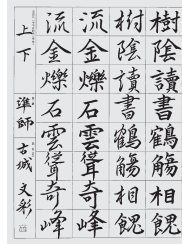 樹陰讀書鶴觴相餽
樹陰讀書鶴觴相餽
流金爍石雲聳奇峰
流金爍石雲聳奇峰
上下 準師 古城文彩